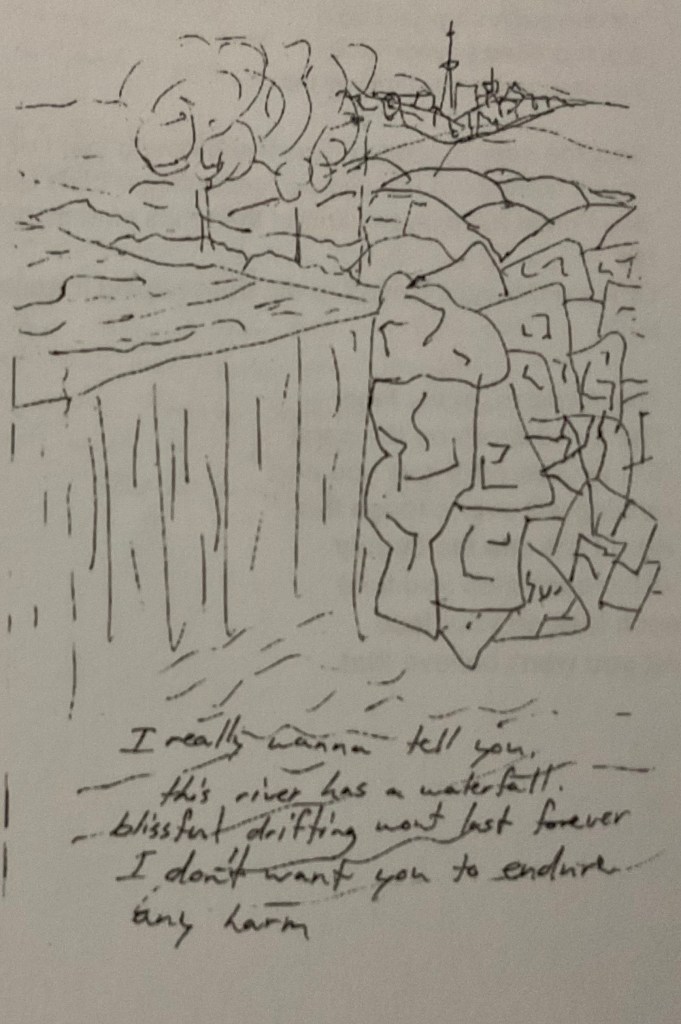 I really wanna tell you.
this river has a waterfall.
blissful drifting wont last forever
I don't want you to endure
any harm